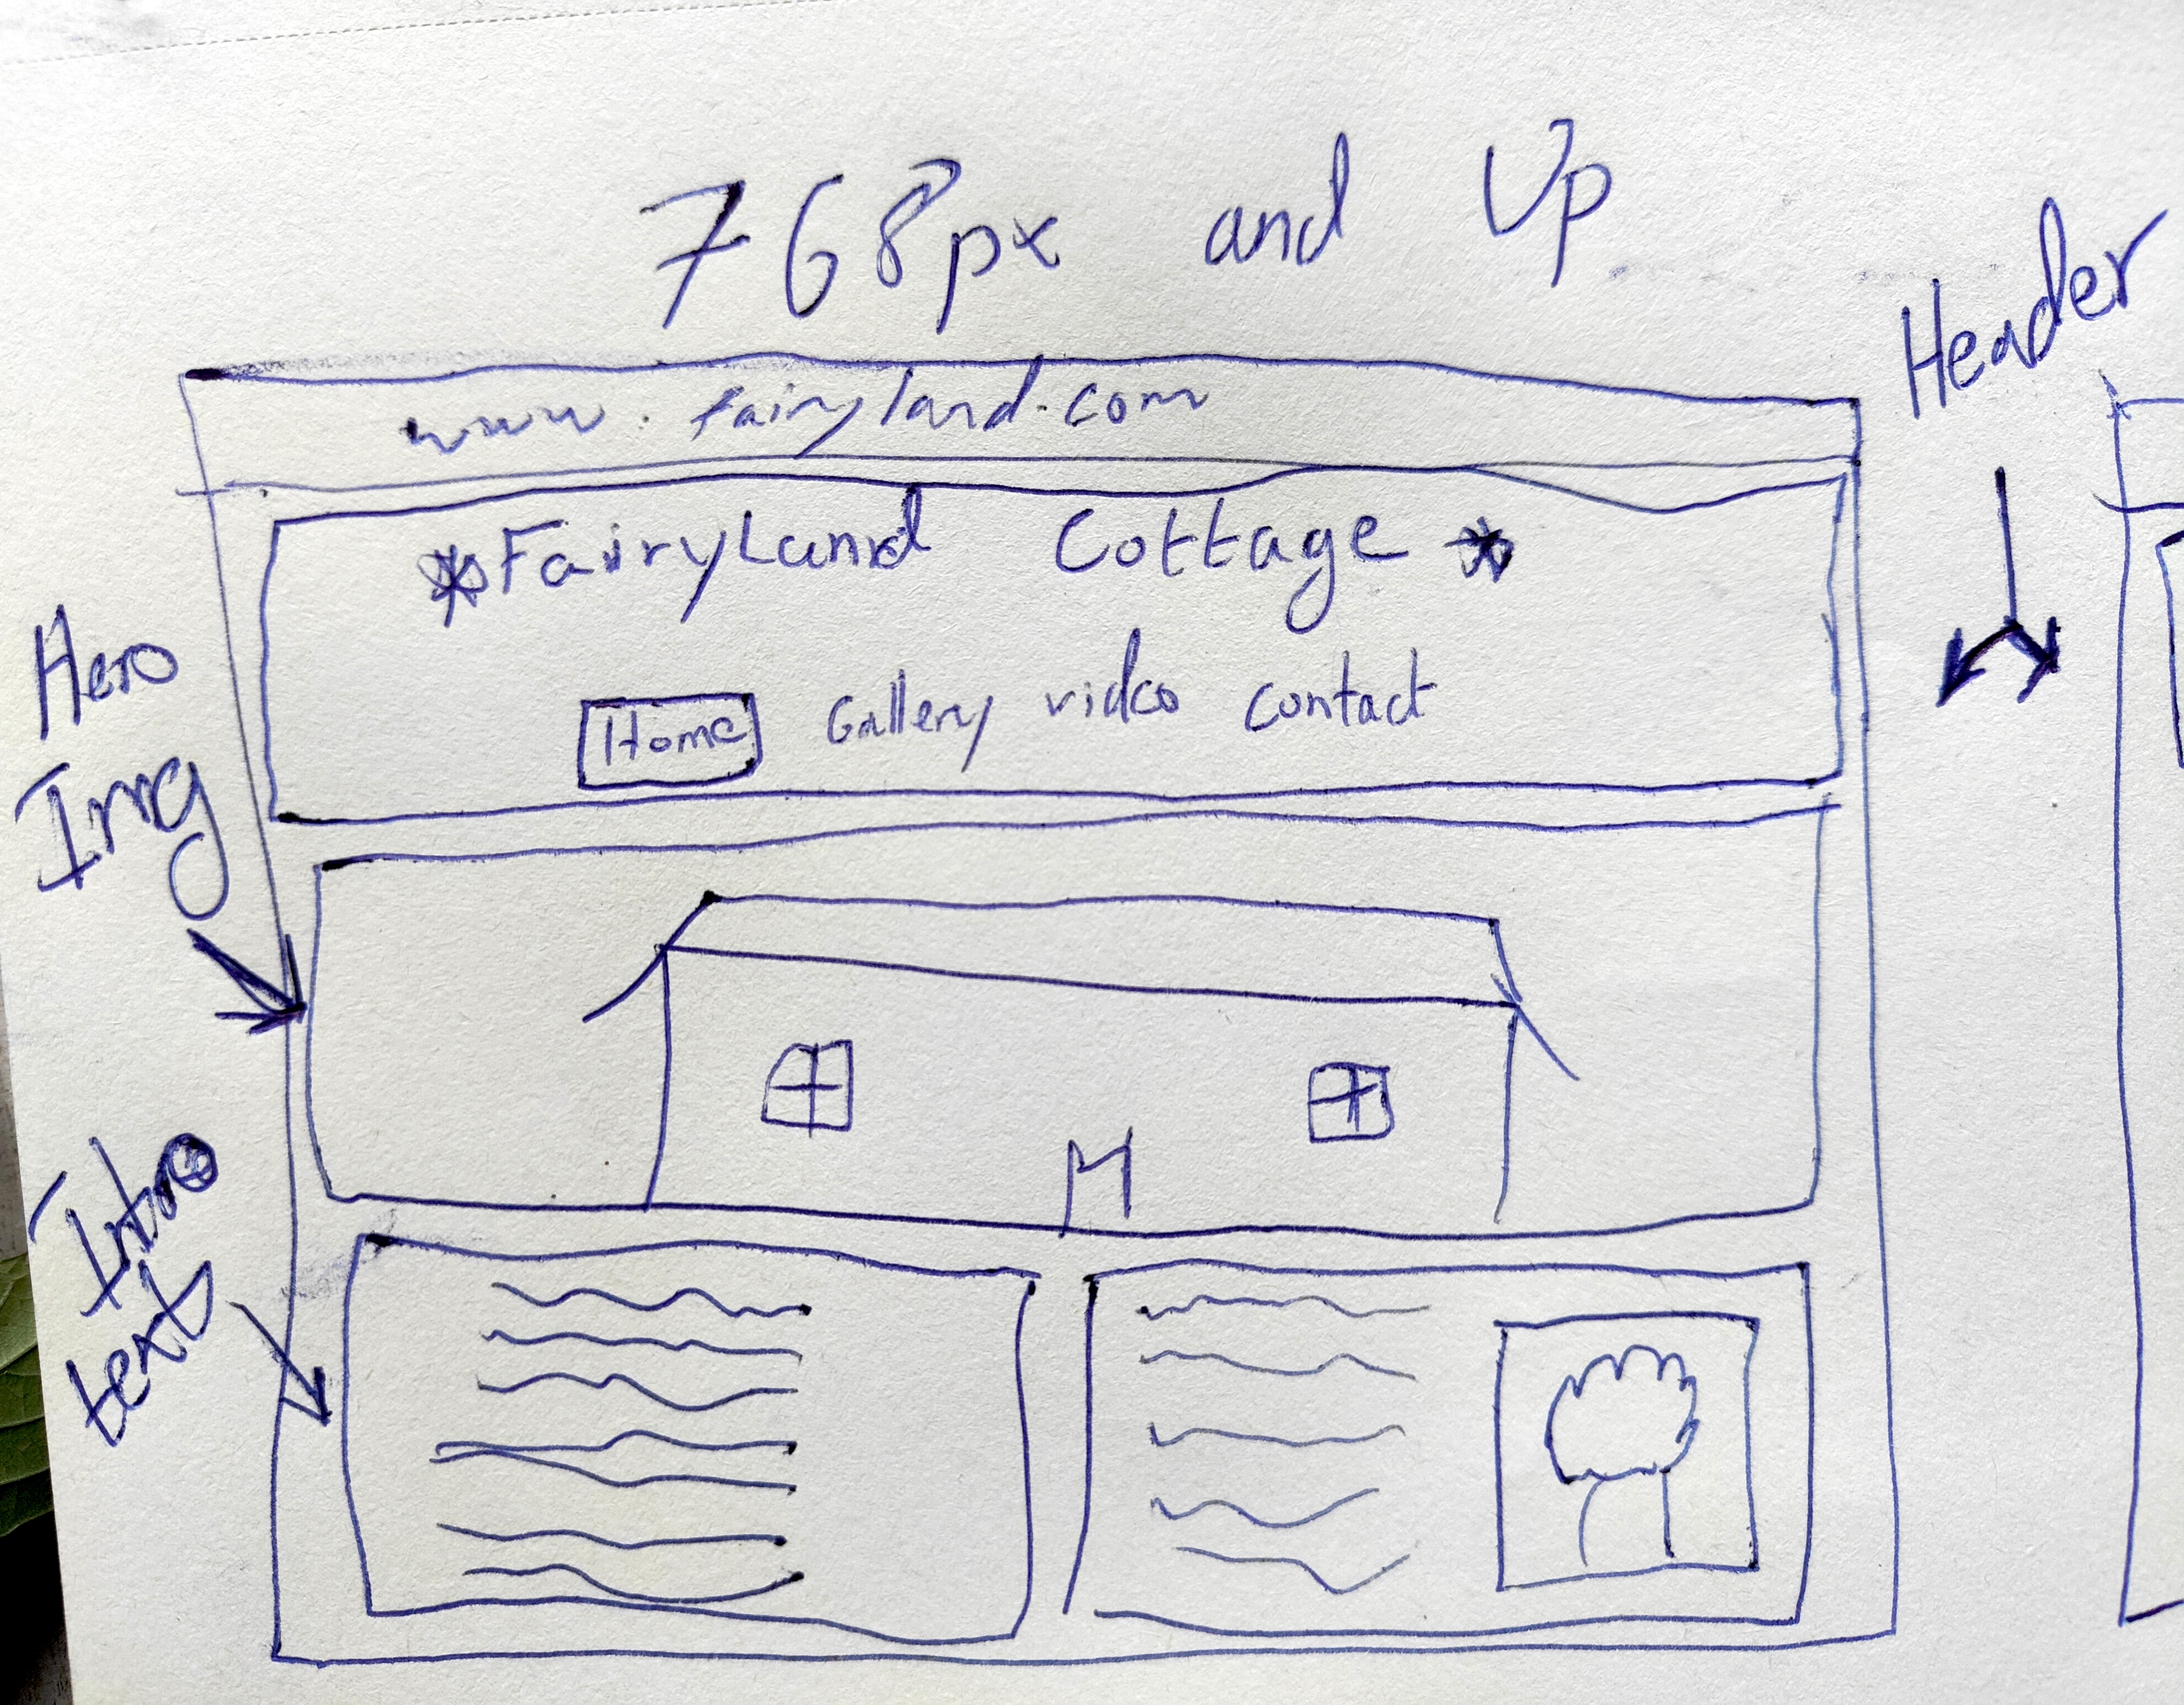 768px and Up
Header
www.fairyland.com
*FairyLand Cottage *
Home Gallery video contact
Hero
Img
Intro
text